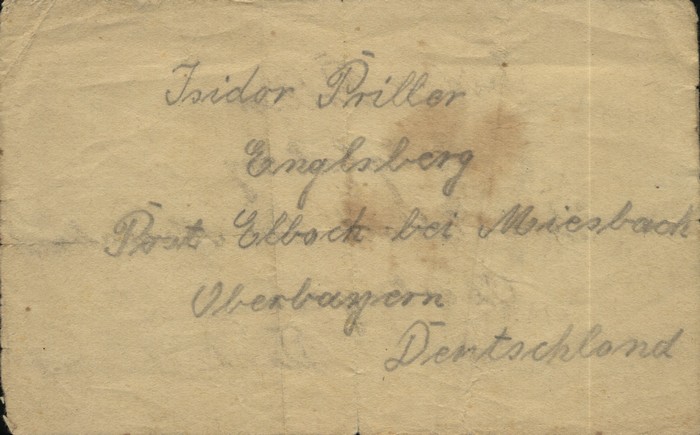 Isidor Priller
Englsberg
Post Elbach bei Miesbach
Oberbayern
Deutschland